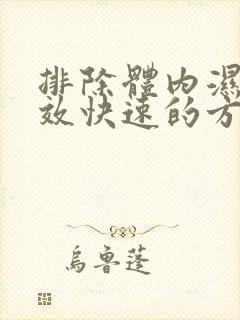 排除體內濕
效快速的方
烏魯蓬